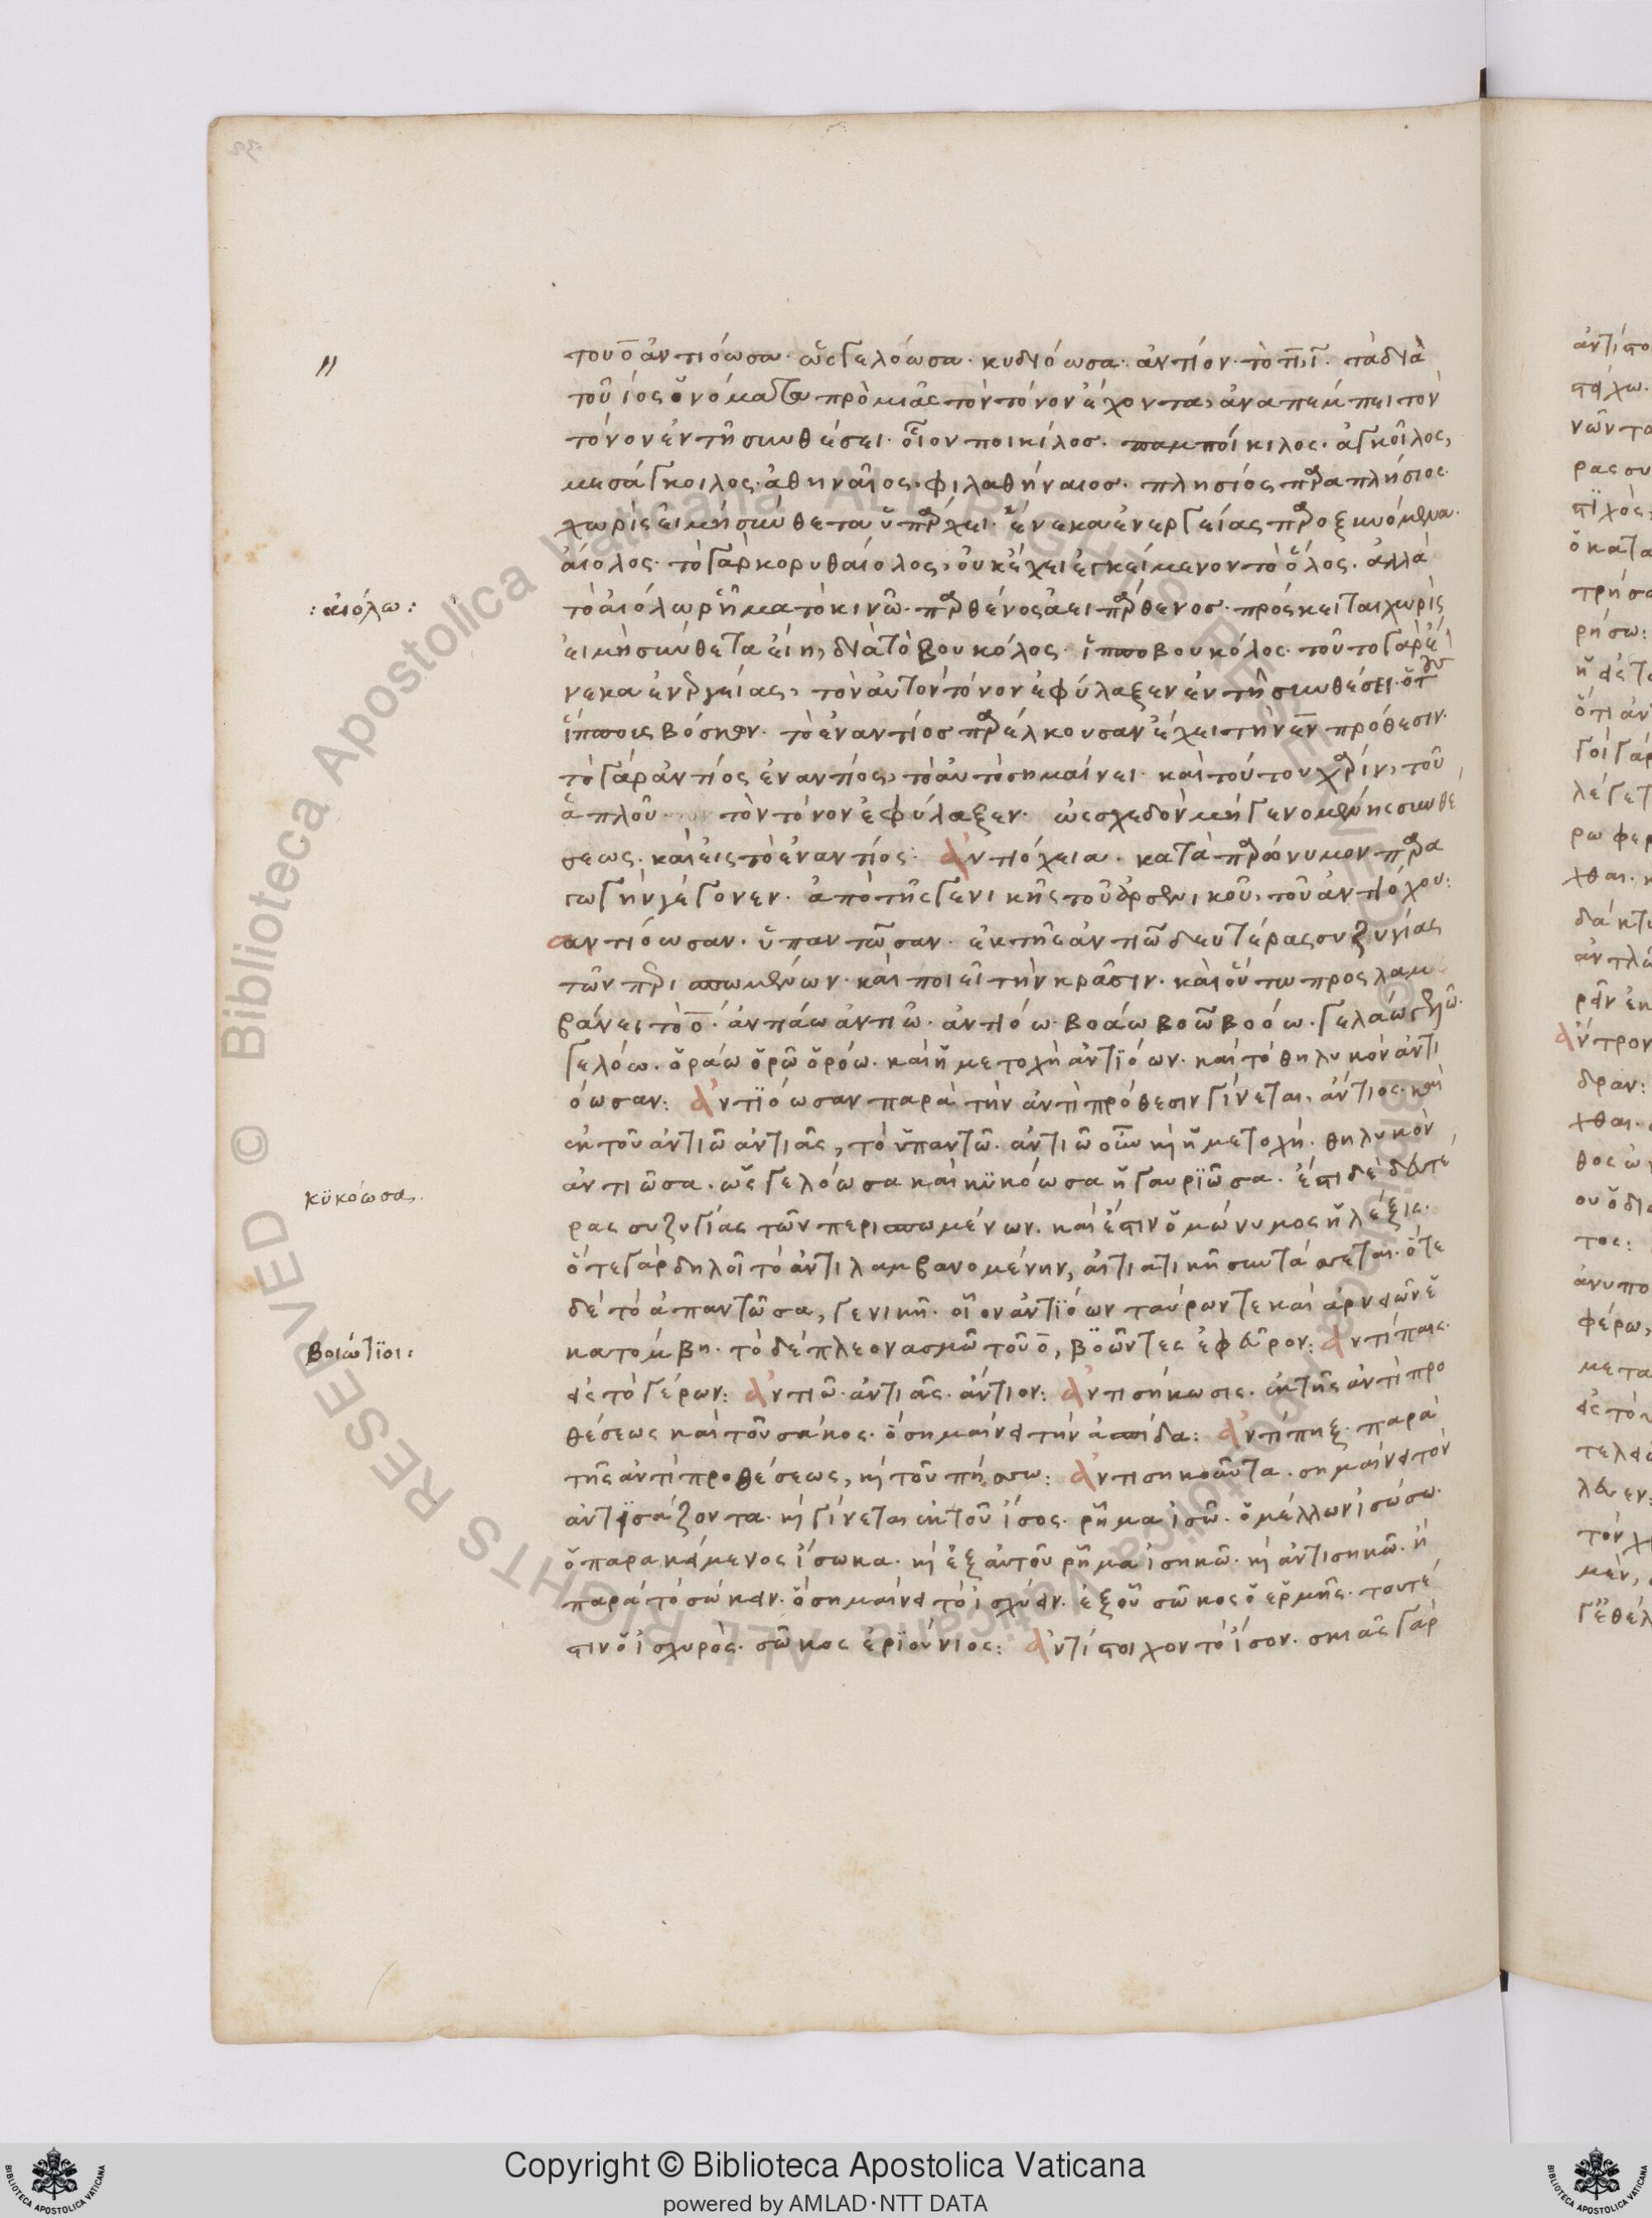 του ο̄ ἀντιόωσα· ὡς γελόωσα· κυδιόωσα· ἀντίον· τὸ π̄ῑ· τὰ διὰ
τοῦ ἱος ὀνόματα πρὸ μιᾶς τὸν τόνον ἔχοντα, ἀναπέμπει τὸν
τόνον ἐν τῇ συνθέσει· οἷον ποικίλος· παμποίκιλος· ἀγκοῖλος,
μεσάγκοιλος· ἀθηναῖος· φιλαθήναιος· πλησίος παραπλήσιος·
χωρὶς εἰ μὴ σύνθετα ὑπάρχει· ἕνεκα ἐνεργείας παροξυνόμενα·
αἰόλος· τὸ γὰρ κορυθαιόλος, οὐκ ἔχει ἐγκείμενον τὸ ὅλος· ἀλλὰ
: αἰόλω :
τὸ αἰόλω ῥῆμα τὸ κινῶ· παρθένος ἀειπάρθενος· πρόσκειται χωρὶς
εἰ μὴ σύνθετα εἴη, διὰ τὸ βουκόλος· ἱπποβουκόλος· τοῦτο γὰρ ἕ
νεκα ἐνεργείας, τὸν αὐτὸν τόνον ἐφύλαξεν ἐν τῇ συνθέσει·
ἵπποις βόσκων· τὸ ἐναντίος παρέλκουσαν ἔχει τὴν ἐν πρόθεσιν·
τὸ γὰρ ἀντίος ἐναντίος, τὸ αὐτὸ σημαίνει· καὶ τούτου χάριν, τοῦ
ἁπλοῦ τὸν τόνον ἐφύλαξεν· ὡς σχεδὸν μὴ γενομένης συνθέ
σεως· καὶ εἰς τὸ ἐναντίος: Ἀντιόχεια· κατὰ παρώνυμον παρα
γωγὴν γέγονεν· ἀπὸ τῆς γενικῆς τοῦ ἀρσενικοῦ, τοῦ ἀντιόχου:
αντιόωσαν· ὑπαντῶσαν· ἐκ τῆς ἀντιῶ δευτέρας συζυγίας
τῶν περισπωμένων· καὶ ποιεῖ τὴν κρᾶσιν· καὶ οὕτω προσλαμ
βάνει τὸ ο̄· ἀντιάω ἀντιῶ· ἀντιόω· βοάω βοῶ βοόω· γελάω γελῶ·
γελόω· ὁράω ὁρῶ ὁρόω· καὶ ἡ μετοχὴ ἀντϊόων· καὶ τὸ θηλυκὸν ἀντι
όωσαν: Ἀντϊόωσαν παρὰ τὴν ἀντὶ πρόθεσιν γίνεται, ἀντίος· καὶ
ἐκ τοῦ ἀντιῶ ἀντιᾶς, τὸ ὑπαντῶ· ἀντιῶ οὖν κὴ ἡ μετοχή· θηλυκὸν
ἀντιῶσα· ὡς γελόωσα καὶ κϋκόωσα ἡ γαυριῶσα· ἔστι δὲ δευτέ
κϋκόωσα.
ρας συζυγίας τῶν περισπωμένων· καὶ ἔστιν ὁμώνυμος ἡ λέξις·
ὅτε γὰρ δηλοῖ τὸ ἀντιλαμβανομένην, αἰτιατικῇ συντάσσεται· ὅτε
δὲ τὸ ἀπαντῶσα, γενικῇ· οἷον ἀντϊόων ταύρων τε καὶ ἀρνειῶν ἑ
κατόμβη· τὸ δὲ πλεονασμῶ τοῦ ο̄, βοῶντες ἔφερον: Ἀντίπαις·
Βοιώτϊοι:
εἰς τὸ γέρων: Ἀντιῶ· ἀντιᾶς· ἀντίον: Ἀντισήκωσις· ἐκ τῆς ἀντὶ προ
θέσεως καὶ τοῦ σάκος· ὃ σημαίνει τὴν ἀσπίδα: Ἀντίπηξ· παρὰ
τῆς ἀντὶ προθέσεως, κὴ τοῦ πήσσω: Ἀντισηκοῦντα· σημαίνει τὸν
ἀντϊσάζοντα· κὴ γίνεται ἐκ τοῦ ἴσος· ῥῆμα ἰσῶ· ὁ μέλλων ἰσώσω·
ὁ παρακείμενος ἴσωκα· κὴ ἐξ αὐτοῦ ῥῆμα ἰσηκῶ· κὴ ἀντισηκῶ· ἢ
παρὰ τὸ σώκειν· ὃ σημαίνει τὸ ἰσχύειν· ἐξ οὗ σῶκος ὁ ἑρμῆς· τουτέ
στιν ὁ ἰσχυρός· σῶκος ἐρϊούνιος: Ἀντίστοιχον τὸ ἴσον· σκιᾶς γὰρ
Copyright © Biblioteca Apostolica Vaticana
powered by AMLAD·NTT DATA